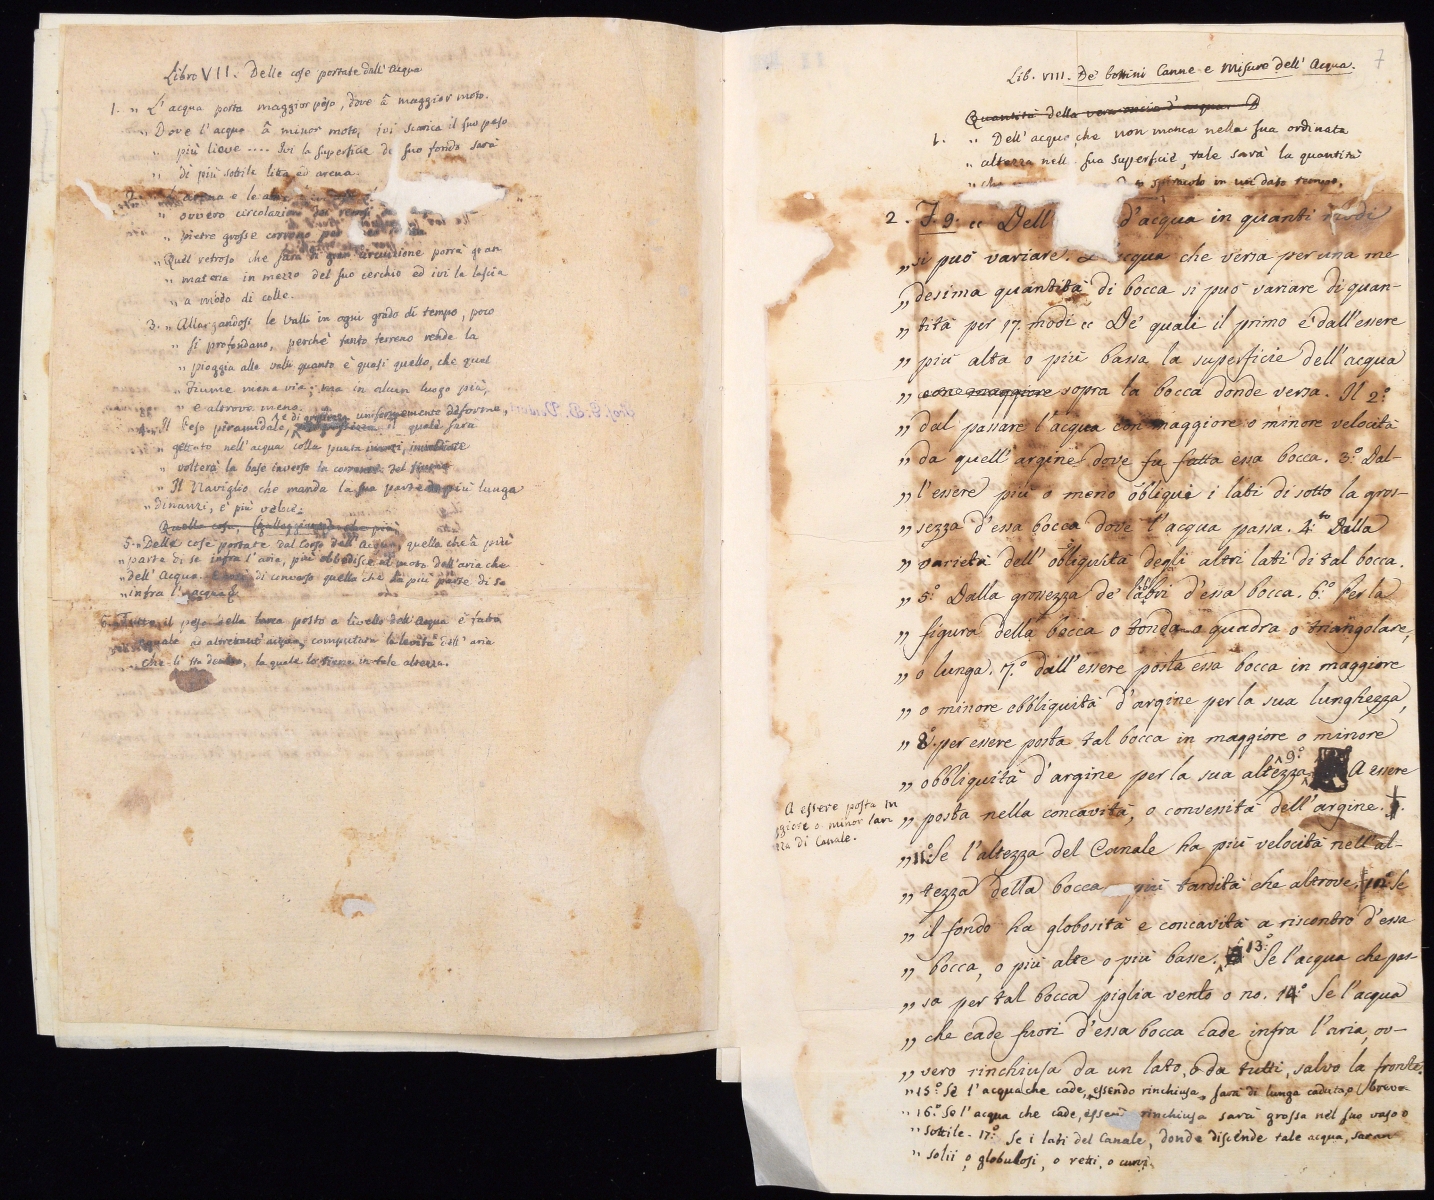 Libro VII. Delle cose portate dall'Acqua
1. „ L'acqua porta maggior peso, dove â maggior moto.
„ Dove l'acqua â minor moto, ivi scarica il suo peso
„ più lieve .... Ivi la superficie del suo fondo sarà
„ di più sottile litta ed arena.
2. L'arena e le
„ ovvero circolazioni dei retrosi
„ pietre grosse corrono per
„ Quel retroso che sarà di gran circuizione porrà gran
„ materia in mezzo del suo cerchio ed ivi la lascia
„ a modo di colle.
3. „ Allargandosi le Valli in ogni grado di tempo, poco
„ si profondano, perchè tanto terreno rende la
„ pioggia alla valle quanto è quasi quello, che quel
„ Fiume mena via; ma in alcun luogo più,
„ e altrove meno.
4. Il Peso piramidale, è di grossezza uniformemente disforme, il quale sarà
„ gettato nell'acqua colla punta innanzi,
„ volterà la base inverso la corrente del fiume
„ Il Naviglio che manda la sua parte più lunga
„ dinanzi, è più veloce.
Quella cosa, (galleggiante) che più
5. „ Delle cose portate dal Corso dell'Acqua, quella che â più
„ parte di se infra l'aria, più obbedisce al moto dell'aria che
„ dell'Acqua. E così di converso quella che ha più parte di se
„ infra l'acqua.
6. Tutto il peso della barca posto a livello dell'Acqua è fatto
eguale ad altrettant'acqua, computata la levità dell'aria
che li sta dentro, la quale lo tiene in tale altezza.
7
Lib. VIII. De' bottini Canne e Misure dell'Acqua.
Quantità della vera oncia d'acqua
1. „ Dell'acqua, che non manca nella sua ordinata
„ altezza nella sua superficie, tale sarà la quantità
„ che spiracolo in un dato tempo.
2. F. 9. „ Dell d'acqua in quanti modi
„ si può variare. L'acqua che versa per una me
„ desima quantità di bocca si può variare di quan-
„ tità per 17. modi „ De' quali il primo è dall'essere
„ più alta o più bassa la superficie dell'acqua
„ con maggiore sopra la bocca donde versa. Il 2.º
„ dal passare l'acqua con maggiore o minore velocità
„ da quell'argine dove fu fatta essa bocca. 3.º Dal-
„ l'essere più o meno obliqui i lati di sotto la gros-
„ sezza d'essa bocca dove l'acqua passa. 4.to Dalla
„ varietà dell'obliquità degli altri lati di tal bocca.
„ 5.º Dalla grossezza de' labri d'essa bocca. 6.º Per la
„ figura della bocca o tonda o quadra o triangolare,
„ o lunga. 7.º dall'essere posta essa bocca in maggiore
„ o minore obbliquità d'argine per la sua lunghezza,
„ 8.º per essere posta tal bocca in maggiore o minore
„ obbliquità d'argine per la sua altezza 9.º A essere
„ posta nella concavità, o convessità dell'argine.
A essere posta in
ggiore o minor lar
zza di Canale.
„ 11.º Se l'altezza del Canale ha più velocità nell'al-
„ tezza della bocca più tardità che altrove. 12.º Se
„ il fondo ha globosità e concavità a riscontro d'essa
„ bocca, o più alte o più basse. 13.º Se l'acqua che pas-
„ sa per tal bocca piglia vento o no. 14.º Se l'acqua
„ che cade fuori d'essa bocca cade infra l'aria, ov-
„ vero rinchiusa da un lato, o da tutti, salvo la fronte.
„ 15.º Se l'acqua che cade, essendo rinchiusa, sarà di lunga caduta, o breve
„ 16.º Se l'acqua che cade, essendo rinchiusa sarà grossa nel suo vaso o
„ sottile. 17.º Se i lati del Canale, donde discende tale acqua, saran
„ solii o globulosi, o retti, o curvi.